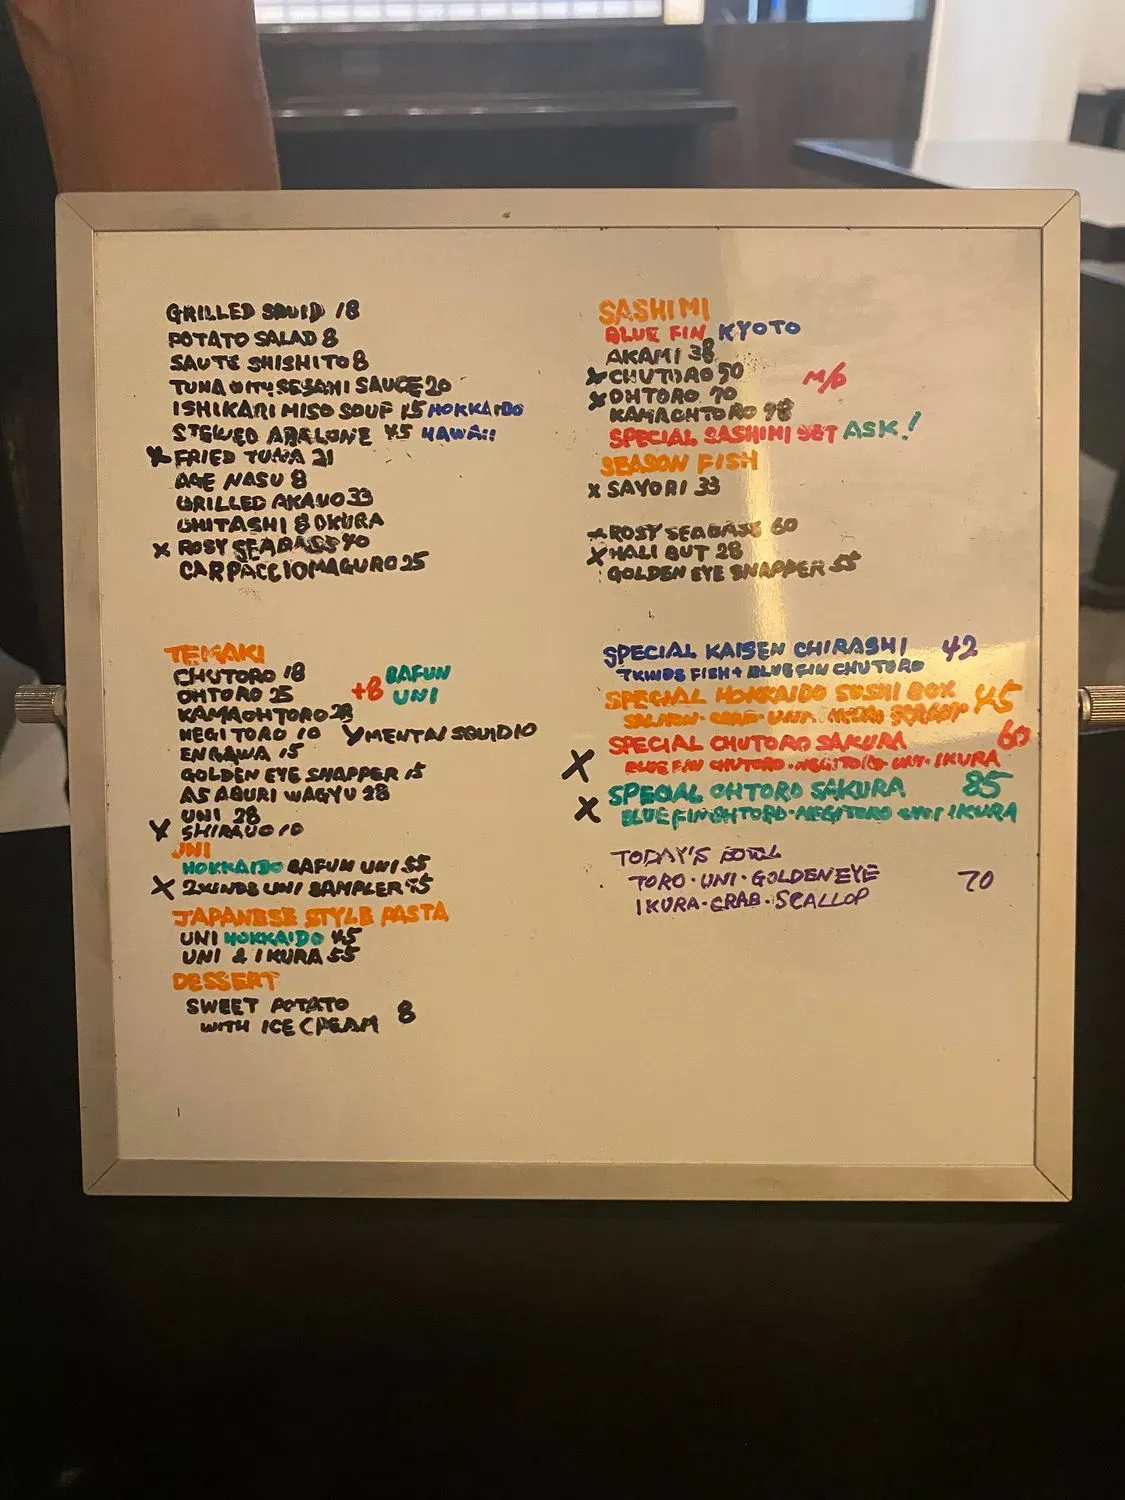 GRILLED SQUID 18
POTATO SALAD 8
SAUTE SHISHITO 8
TUNA WITH SESAMI SAUCE 20
ISHIKARI MISO SOUP 15 HOKKAIDO
STEWED ABALONE 45 HAWAII
X FRIED TUNA 21
AGE NASU 8
GRILLED AKAUO 33
OHITASHI 8 OKURA
X ROSY SEABASS 40
CARPACCIO MAGURO 25
TEMAKI
CHUTORO 18
OHTORO 25
+8 BAFUN UNI
KAMAOHTORO 28
NEGITORO 10
X MENTAI SQUID 10
ENGAWA 15
GOLDEN EYE SNAPPER 15
A5 ABURI WAGYU 28
UNI 28
X SHIRAUO 10
UNI
HOKKAIDO BAFUN UNI 55
X 2KINDS UNI SAMPLER
JAPANESE STYLE PASTA
UNI HOKKAIDO 45
UNI & IKURA 55
DESSERT
SWEET POTATO
WITH ICE CREAM 8
SASHIMI
BLUE FIN KYOTO
AKAMI 38
X CHUTORO 50
M/6
X OHTORO 70
KAMAOHTORO 98
SPECIAL SASHIMI SET ASK!
SEASON FISH
X SAYORI 33
X ROSY SEABASS 60
X HALIBUT 28
GOLDEN EYE SNAPPER 55
SPECIAL KAISEN CHIRASHI 42
7KINDS FISH + BLUE FIN CHUTORO
SPECIAL HOKKAIDO SUSHI BOX 45
SALMON · CRAB · UNI · IKURA SCALLOP
SPECIAL CHUTORO SAKURA 60
X BLUE FIN CHUTORO · NEGITORO · UNI · IKURA
SPECIAL OHTORO SAKURA 85
X BLUE FIN OHTORO · NEGITORO UNI IKURA
TODAY'S BOWL
TORO · UNI · GOLDEN EYE 70
IKURA · CRAB · SCALLOP